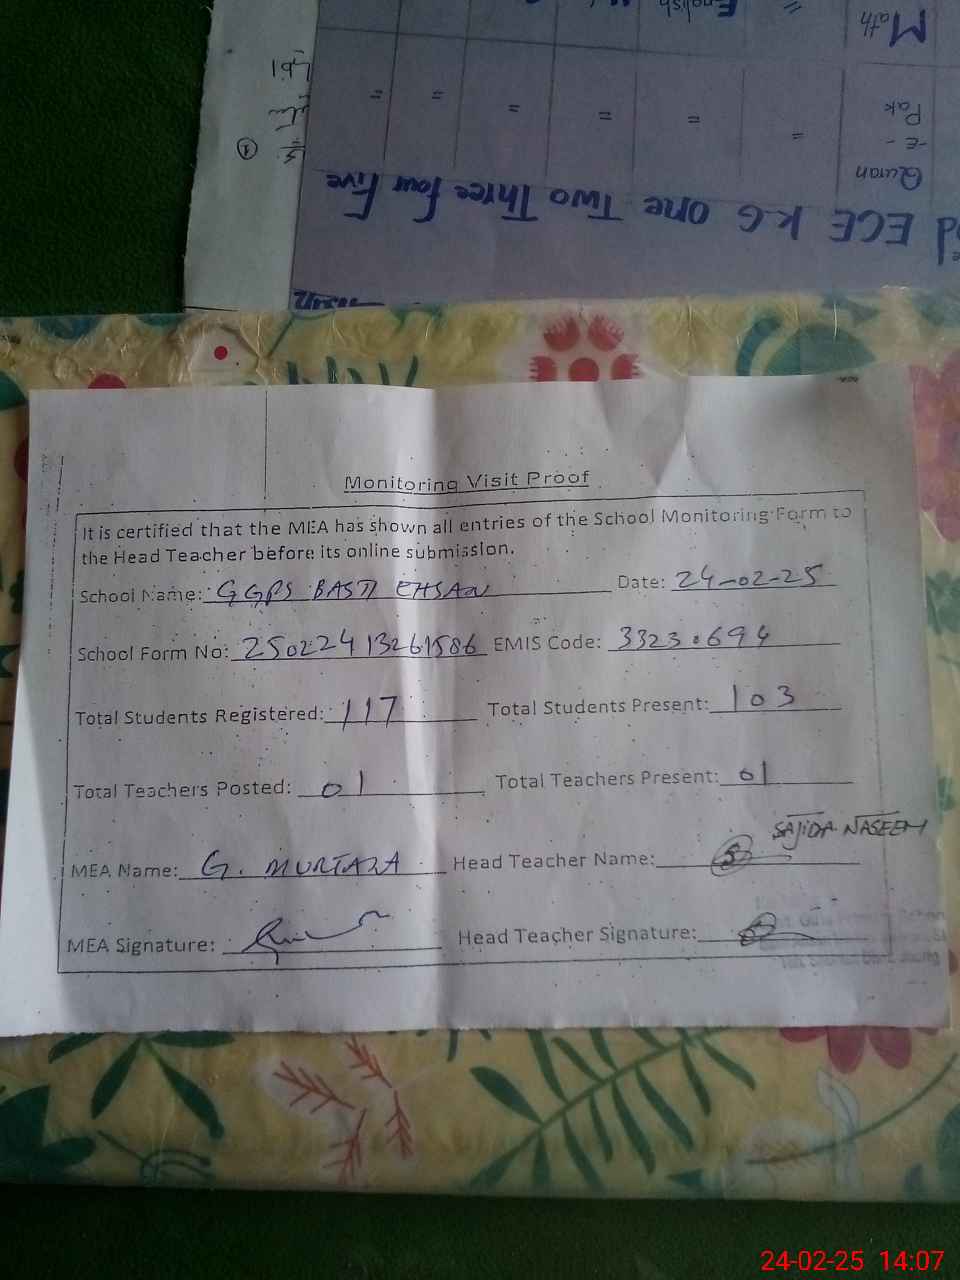 Math = English
Quran -E- Pak = = = = = =
ECE KG One Two Three four Five
1
Monitoring Visit Proof
It is certified that the MEA has shown all entries of the School Monitoring Form to
the Head Teacher before its online submission.
School Name: GGPS BASTI EHSAN Date: 24-02-25
School Form No: 25022413261586 EMIS Code: 33230694
Total Students Registered: 117 Total Students Present: 103
Total Teachers Posted: 01 Total Teachers Present: 01
SAJIDA NASEEM
MEA Name: G. MURTAZA Head Teacher Name:
MEA Signature: Head Teacher Signature:
24-02-25 14:07